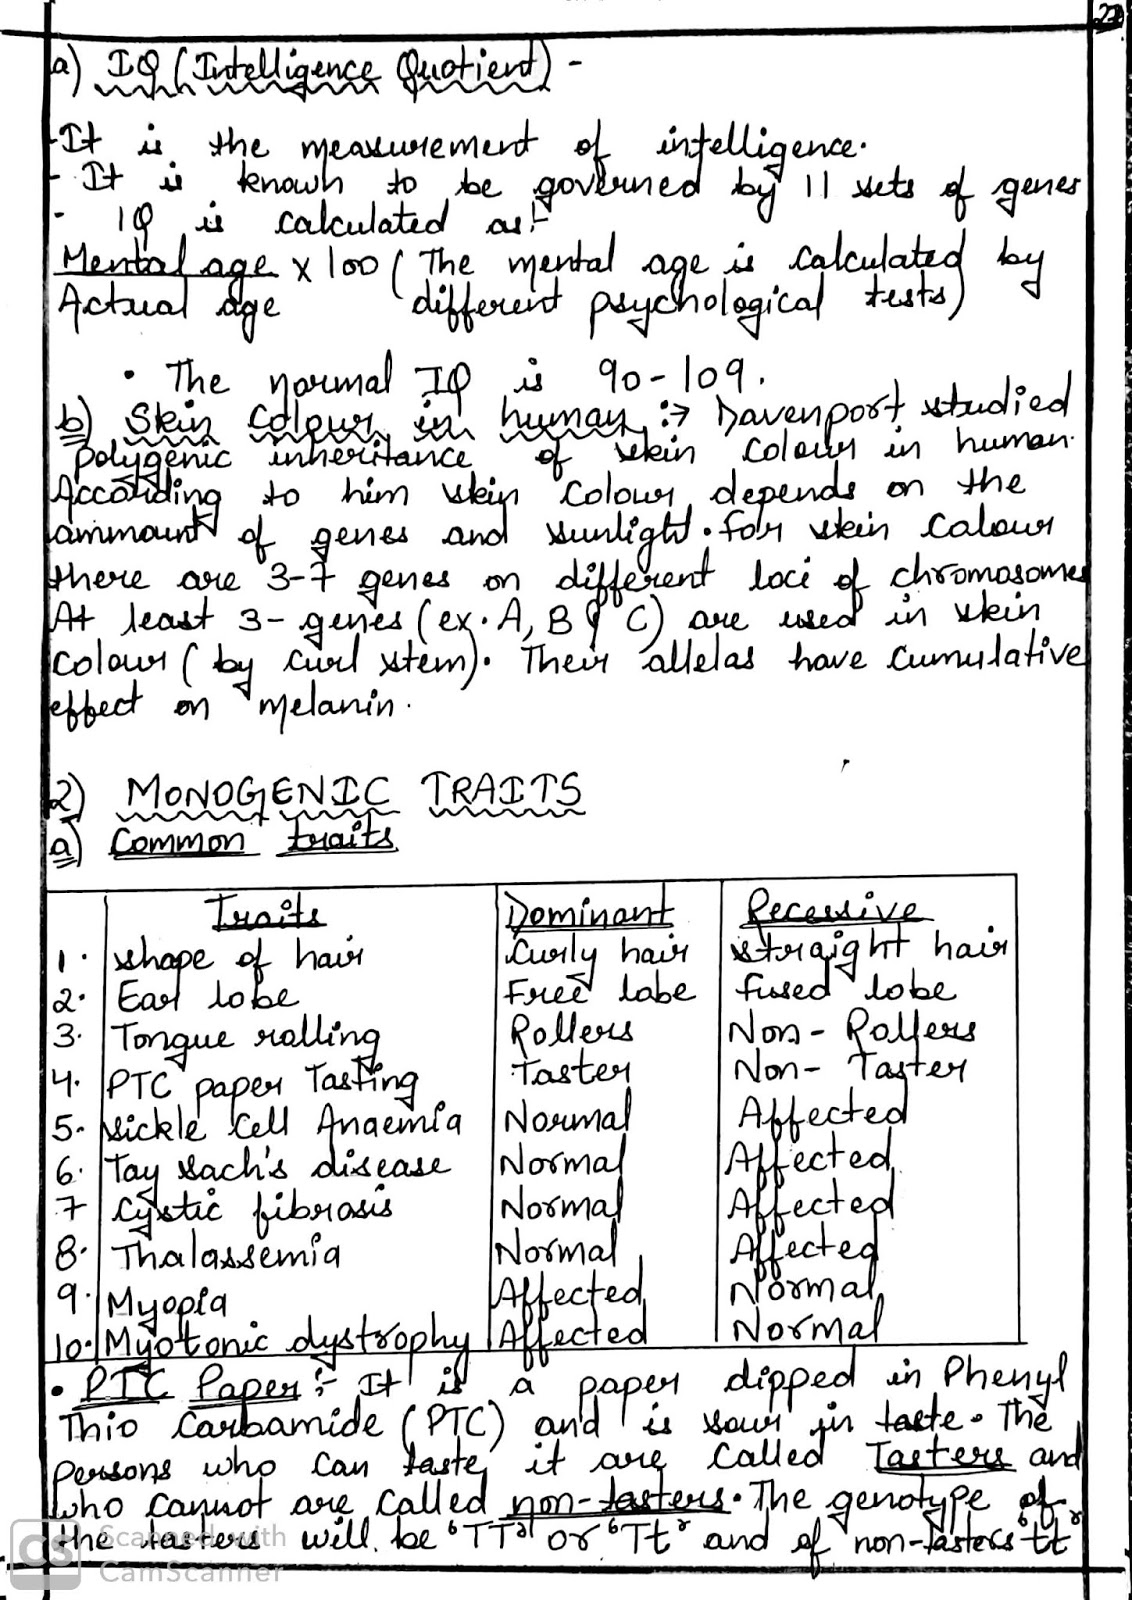 22
a) IQ (Intelligence Quotient) -
- It is the measurement of intelligence.
- It is known to be governed by 11 sets of genes
- IQ is calculated as:-
Mental age x 100 ( The mental age is calculated by
Actual age different psychological tests)
• The normal IQ is 90-109.
b) Skin colour in human :→ Davenport studied
polygenic inheritance of skin colour in human.
According to him skin colour depends on the
ammount of genes and sunlight. for skin calour
there are 3-7 genes on different loci of chromosomes
At least 3-genes (ex. A, B & C) are used in skin
colour ( by curl stem). Their allelas have cumulative
effect on melanin.
2) MONOGENIC TRAITS
a) Common traits
Traits Dominant Recessive
1. shape of hair Curly hair straight hair
2. Ear lobe Free labe fused lobe
3. Tongue rolling Rollers Non-Rollers
4. PTC paper Tasting Taster Non-Taster
5. sickle cell Anaemia Normal Affected
6. Tay sach's disease Normal Affected
7 Cystic fibrosis Normal Affected
8. Thalassemia Normal Affected
9. Myopia Affected Normal
10. Myotonic dystrophy Affected Normal
• PTC Paper :- It is a paper dipped in Phenyl
Thio Carbamide (PTC) and is sour in taste. The
persons who can taste it are called Tasters and
who cannot are called non-tasters. The genotype of
the tasters will be 'TT' or 'Tt' and of non-tasters 'tt'
CS Scanned with
CamScanner